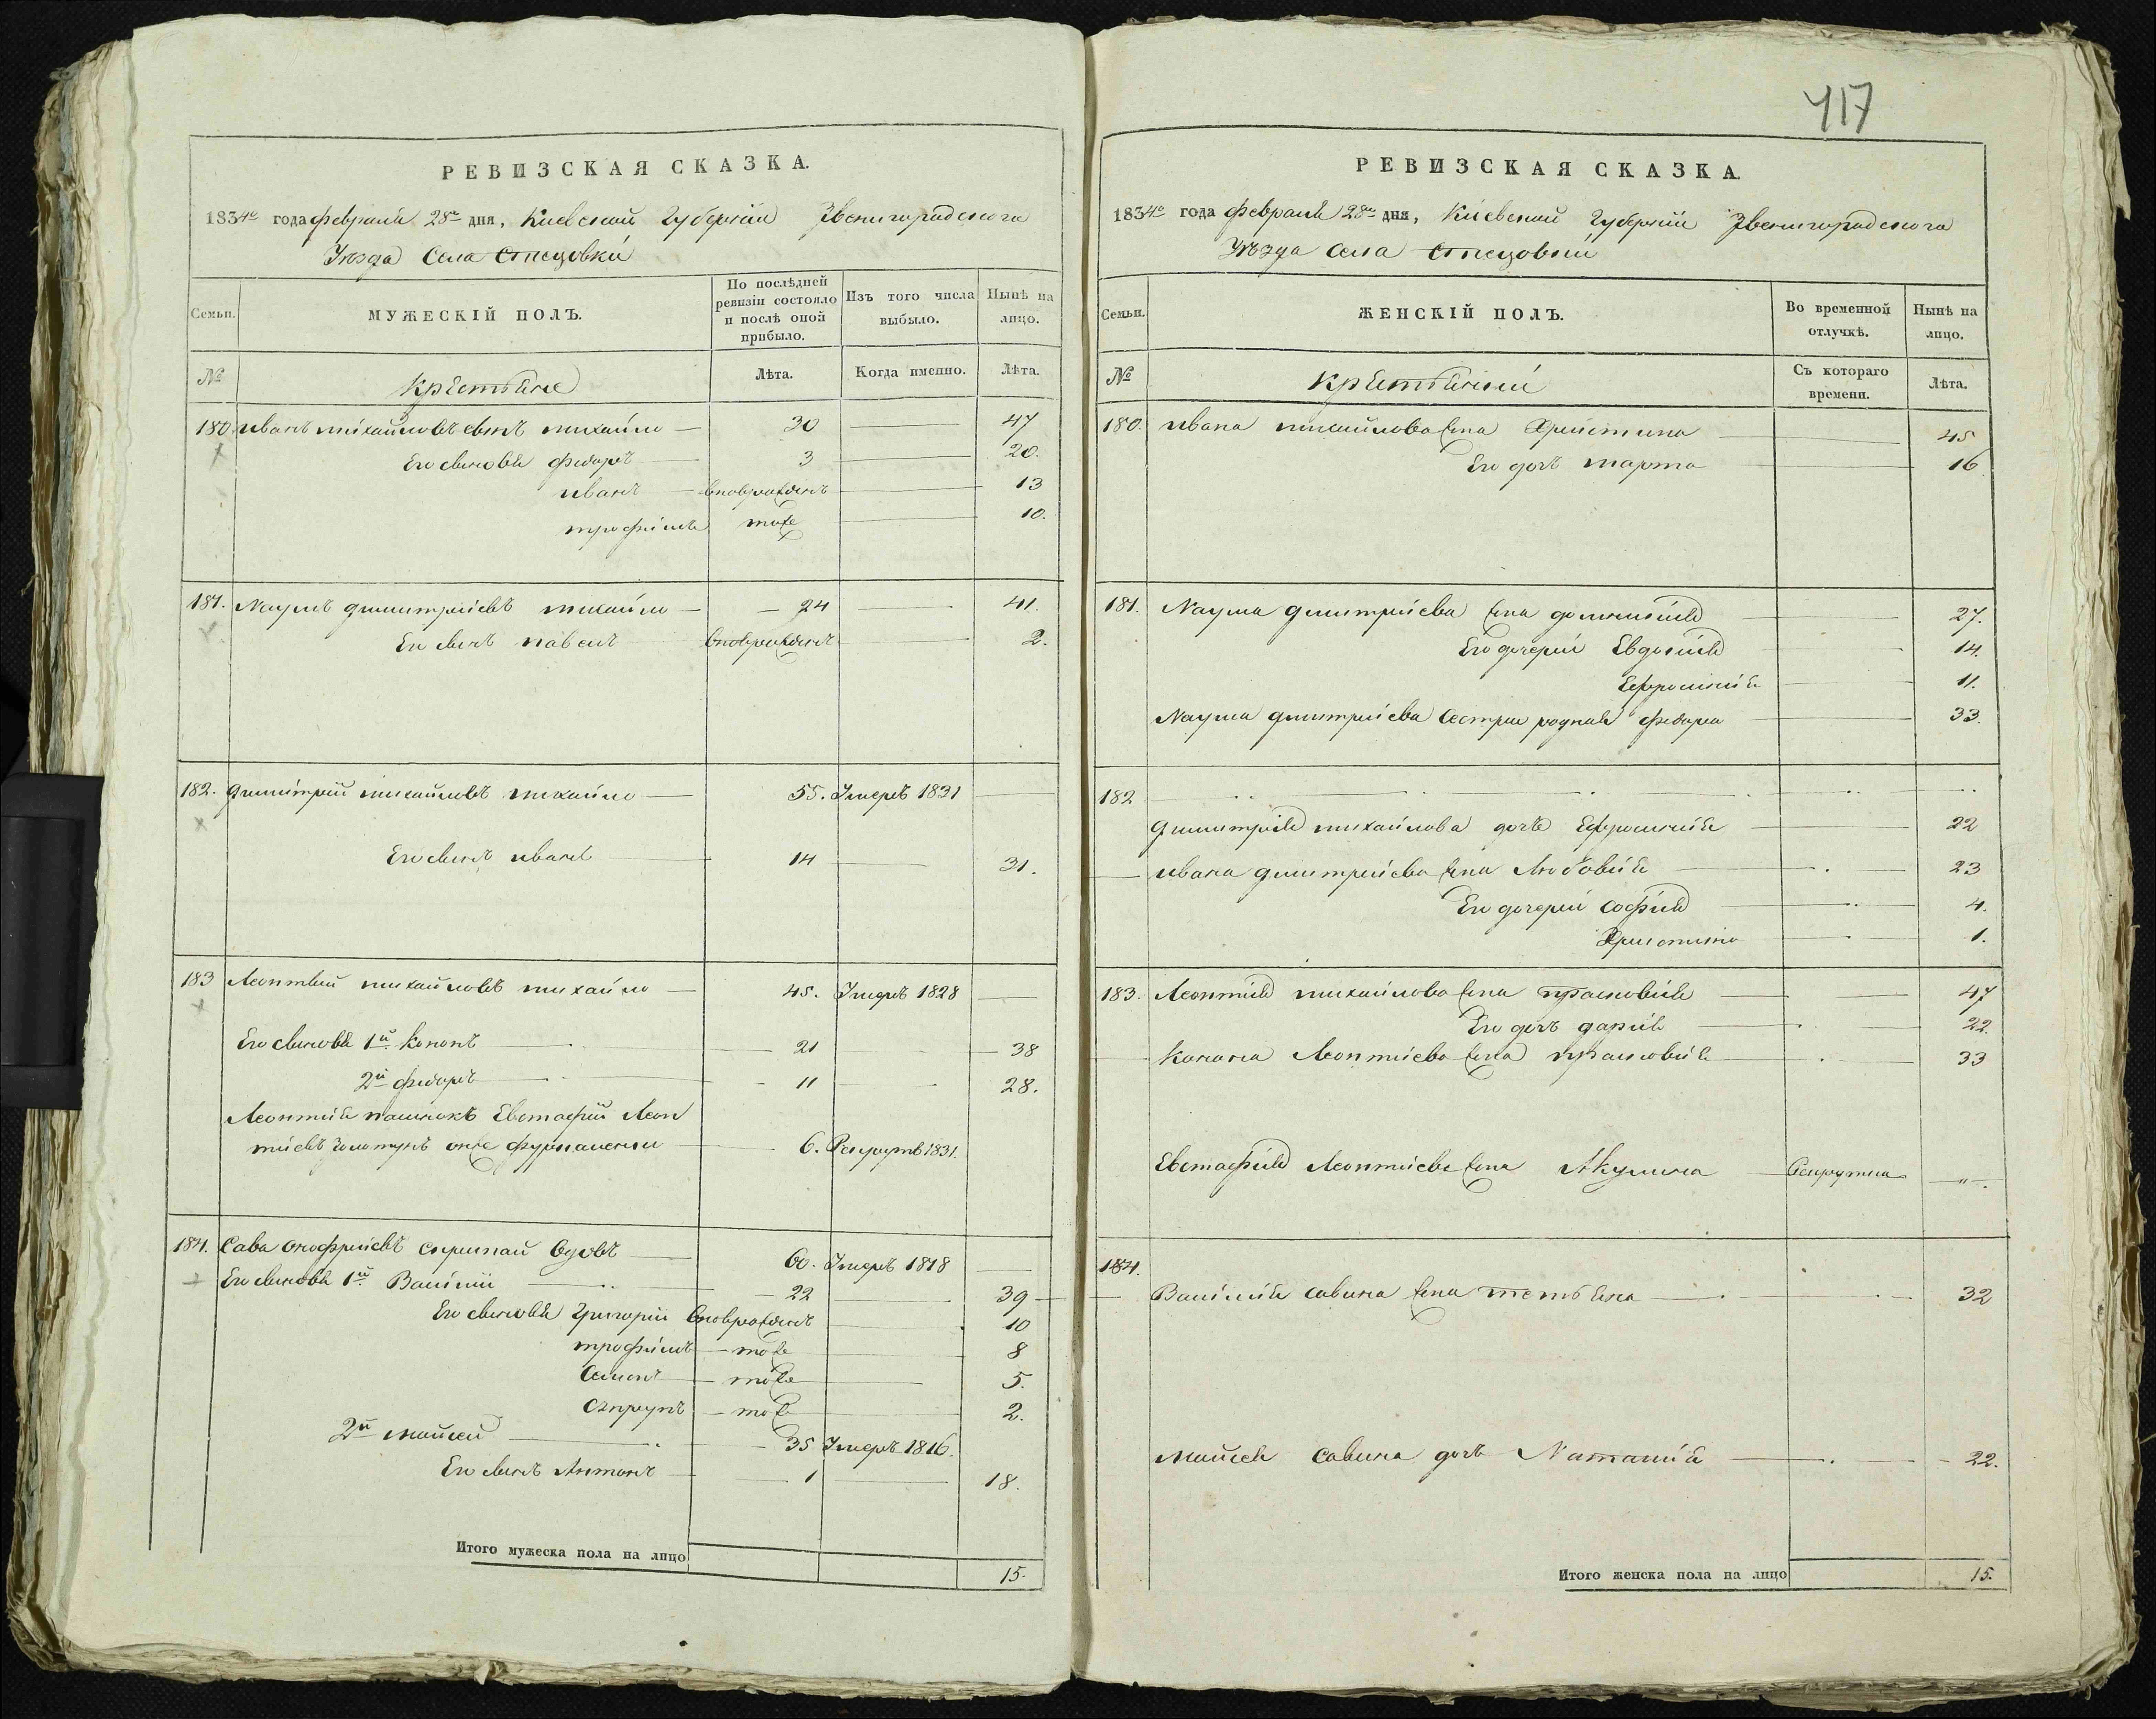 417
РЕВИЗСКАЯ СКАЗКА.
1834го года февраля 28го дня, Киевской Губернии Звенигородского
Уезда Села Стецовки
Семьи.
МУЖЕСКІЙ ПОЛЪ.
По послѣдней ревизіи состояло и послѣ оной прибыло.
Изъ того числа выбыло.
Нынѣ на лицо.
№
Крестьяне
Лѣта.
Когда именно.
Лѣта.
180. иванъ михайловъ сынъ михайло 30 47
Его сыновья федоръ 3 20.
иванъ вновьрожденъ 13
трофимъ тоже 10.
181. Наумъ дмитриевъ михайло 24 41.
Его сынъ павелъ вновьрожденъ 2.
182. дмитрий михайловъ михайло 55. Умеръ 1831
Его сынъ иванъ 14 31.
183 Леонтий михайловъ михайло 45. Умеръ 1828
Его сыновья 1й Кононъ 21 38
2й федоръ 11 28.
Леонтия Евстафий Леон
тиевъ онже 6. Рекрутъ 1831.
184. Сава онофриевъ 60. Умеръ 1818
Его сыновья 1й Василий 22 39
Его сыновья Григорий вновьрожденъ 10
трофимъ тоже 8
Семенъ тоже 5.
тоже 2.
2й мойсей 35 Умеръ 1816.
Его сынъ Антонъ 1 18.
Итого мужеска пола на лицо 15.
РЕВИЗСКАЯ СКАЗКА.
1834го года февраля 28го дня, Киевской Губернии Звенигородского
Уѣзда села Стецовки
Семьи.
ЖЕНСКІЙ ПОЛЪ.
Во временной отлучкѣ.
Нынѣ на лицо.
№
Крестьянки
Съ котораго времени.
Лѣта.
180. ивана михайлова жена Христина 45
Его дочь марта 16
181. Наума дмитриева жена домникия 27.
Его дочери Евдокия 14.
Ефросиния 11.
Наума дмитриева сестра родная федора 33.
182
дмитрия михайлова дочь Ефросиния 22
ивана дмитриева жена Любовия 23
Его дочери софия 4.
Христина 1.
183. Леонтия михайлова жена прасковия 47
Его дочь дария 22.
Конона Леонтиева жена прасковия 33
Евстафия Леонтиева жена Акулина "
184.
Василия савина жена татьяна 32
мойсея савина дочь Наталия 22.
Итого женска пола на лицо 15.